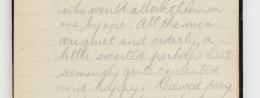 who would allow them in
one by one. All the men
are quiet and orderly, a
little excited perhaps but
seemingly quite contented
and happy. Received pay